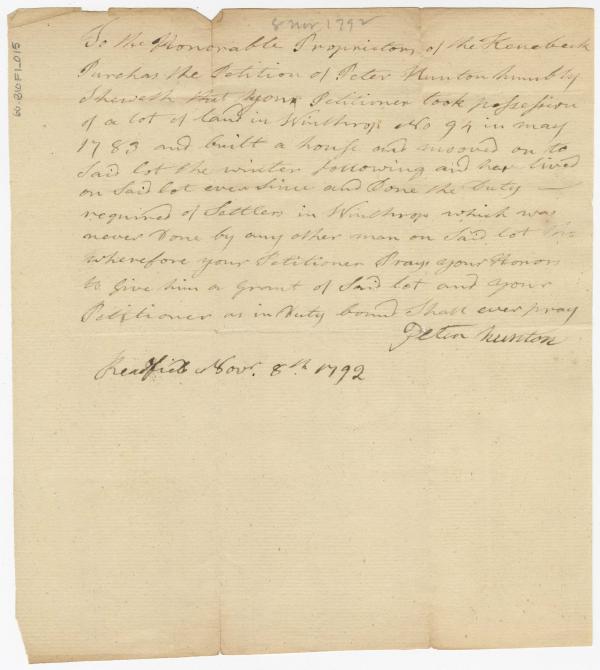 8 Nov. 1792
60-B10F1_015
To the Honorable Proprietors of the Kenebeck
Purchas the Petition of Peter Hunton humbly
Sheweth that your Petitioner took possession
of a lot of land in Winthrop No 94 in may
1783 and built a house and mooved on to
Said lot the winter following and has lived
on Said lot ever Since and Done the Duty
required of Settlers in Winthrop which was
never Done by any other man on Said lot
wherefore your Petitioner Prays your Honors
to Give him a Grant of Said lot and your
Petitioner as in Duty bound Shall ever pray
Peter Hunton
Readfield Nov. 8th 1792